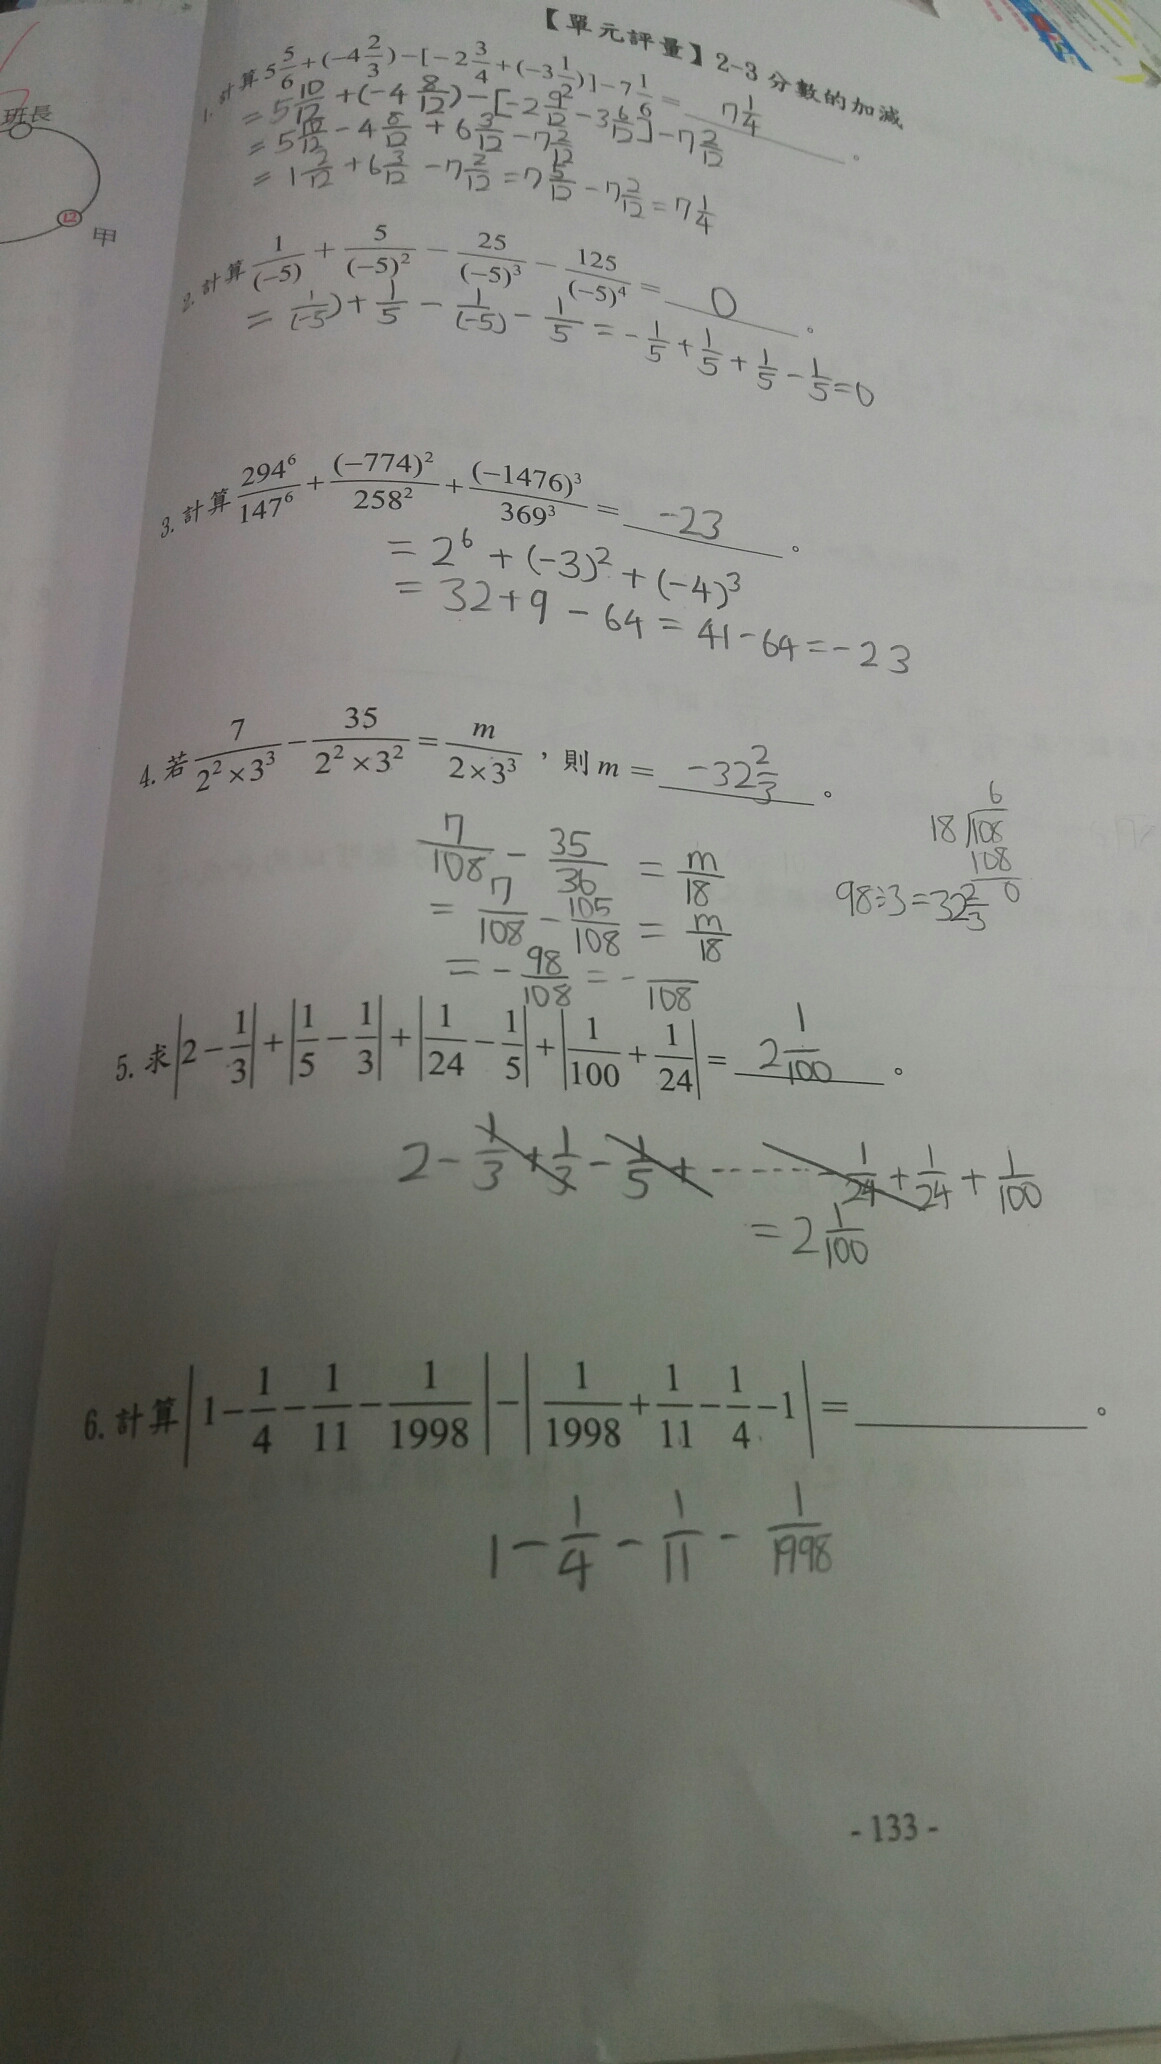 【單元評量】2-3 分數的加減
班長
12
甲
1. 計算 5 5/6 + (-4 2/3) - [-2 3/4 + (-3 1/2)] - 7 1/6 = 7 1/4 。
= 5 10/12 + (-4 8/12) - [-2 9/12 - 3 6/12] - 7 2/12
= 5 10/12 - 4 8/12 + 6 3/12 - 7 2/12
= 1 2/12 + 6 3/12 - 7 2/12 = 7 5/12 - 7 2/12 = 7 1/4
2. 計算 1/(-5) + 5/(-5)² - 25/(-5)³ - 125/(-5)⁴ = 0 。
= 1/(-5) + 1/5 - 1/(-5) - 1/5 = -1/5 + 1/5 + 1/5 - 1/5 = 0
3. 計算 294⁶/147⁶ + (-774)²/258² + (-1476)³/369³ = -23 。
= 2⁶ + (-3)² + (-4)³
= 32 + 9 - 64 = 41 - 64 = -23
4. 若 7/(2²×3³) - 35/(2²×3²) = m/(2×3³) ，則 m = -32 2/3 。
7/108 - 35/36 = m/18
= 7/108 - 105/108 = m/18
= - 98/108 = - /108
6
18 108
108
0
98÷3=32 2/3
5. 求 |2 - 1/3| + |1/5 - 1/3| + |1/24 - 1/5| + |1/100 + 1/24| = 2 1/100 。
2 - 1/3 + 1/3 - 1/5 + ------ 1/24 + 1/24 + 1/100
= 2 1/100
6. 計算 |1 - 1/4 - 1/11 - 1/1998| - |1/1998 + 1/11 - 1/4 - 1| = 。
1 - 1/4 - 1/11 - 1/1998
- 133 -